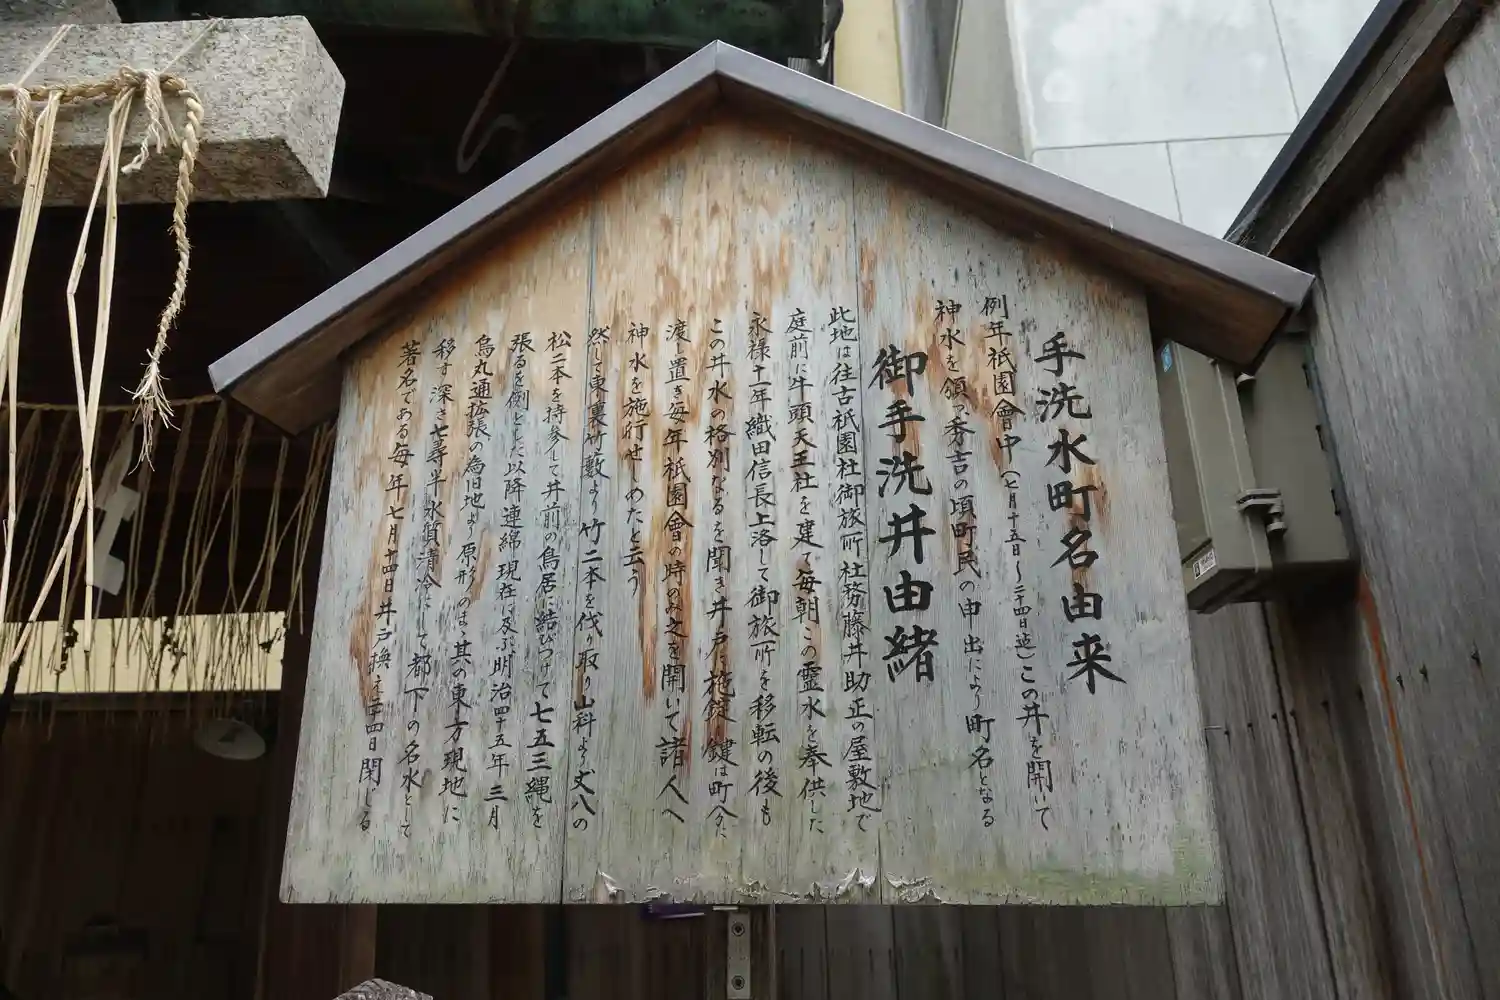 手洗水町名由来
例年祇園會中(七月十五日〜二十四日迠)この井を開いて
神水を頒つ秀吉の頃町民の申出により町名となる
御手洗井由緒
此地は往古祇園社御旅所社務藤井助正の屋敷地で
庭前に牛頭天王社を建て毎朝この霊水を奉供した
永禄十一年織田信長上洛して御旅所を移転の後も
この井水の格別なるを聞き井戸に施錠鍵は町分に
渡し置き毎年祇園會の時のみ之を開いて諸人へ
神水を施行せしめたと云う
然して東裏竹藪より竹二本を伐り取り山科より丈八の
松二本を持参して井前の鳥居に結びつけて七五三縄を
張るを例とした以降連綿現在に及ぶ明治四十五年三月
烏丸通拡張の為旧地より原形のまゝ其の東方現地に
移す深さ七尋半水質清冷にして都下の名水として
著名である毎年七月十四日井戸換え二十四日閉じる